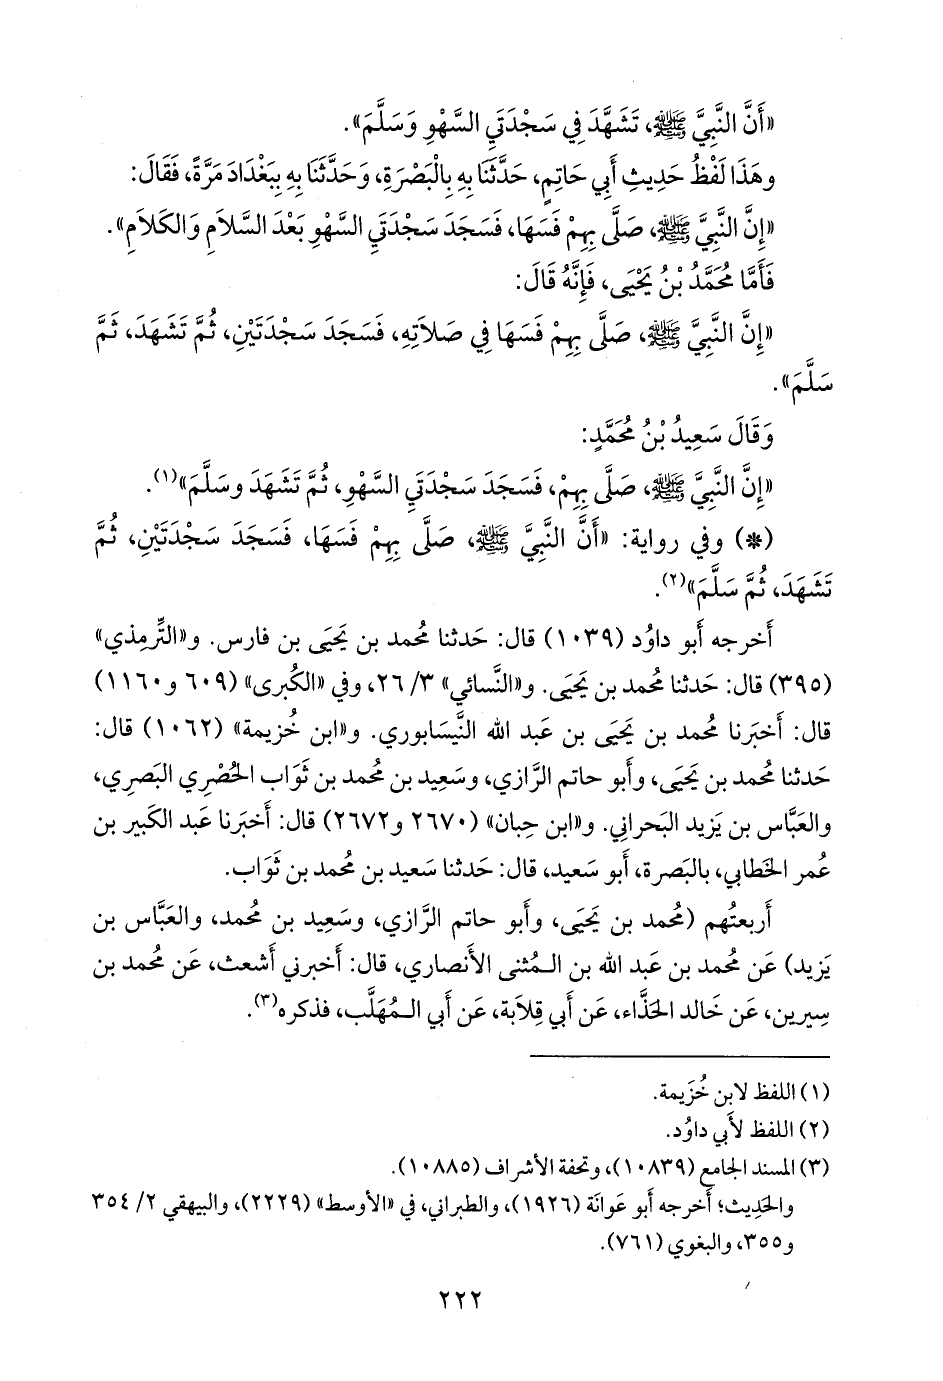 «أَنَّ النَّبِيَّ ﷺ، تَشَهَّدَ فِي سَجْدَتَيِ السَّهْوِ وَسَلَّمَ».
وهَذَا لَفْظُ حَدِيثِ أَبِي حَاتِمٍ، حَدَّثَنَا بِهِ بِالْبَصْرَةِ، وَحَدَّثَنَا بِهِ بِبَغْدَادَ مَرَّةً، فَقَالَ:
«إِنَّ النَّبِيَّ ﷺ، صَلَّى بِهِمْ فَسَهَا، فَسَجَدَ سَجْدَتَيِ السَّهْوِ بَعْدَ السَّلاَمِ وَالكَلاَمِ».
فَأَمَّا مُحَمَّدُ بْنُ يَحْيَى، فَإِنَّهُ قَالَ:
«إِنَّ النَّبِيَّ ﷺ، صَلَّى بِهِمْ فَسَهَا فِي صَلاَتِهِ، فَسَجَدَ سَجْدَتَيْنِ، ثُمَّ تَشَهَدَ، ثَمَّ
سَلَّمَ».
وَقَالَ سَعِيدُ بْنُ مُحَمَّدٍ:
«إِنَّ النَّبِيَّ ﷺ، صَلَّى بِهِمْ، فَسَجَدَ سَجْدَتَيِ السَّهْوِ، ثُمَّ تَشَهَدَ وسَلَّمَ»(١).
(*) وفي رواية: «أَنَّ النَّبِيَّ ﷺ، صَلَّى بِهِمْ فَسَهَا، فَسَجَدَ سَجْدَتَيْنِ، ثُمَّ
تَشَهَدَ، ثُمَّ سَلَّمَ»(٢).
أَخرجه أَبو داوُد (١٠٣٩) قال: حَدثنا مُحمد بن يَحيَى بن فارس. و«التِّرمِذي»
(٣٩٥) قال: حَدثنا مُحمد بن يَحيَى. و«النَّسائي» ٣/ ٢٦، وفي «الكُبرى» (٦٠٩ و١١٦٠)
قال: أَخبَرنا مُحمد بن يَحيَى بن عَبد الله النَّيسَابوري. و«ابن خُزيمة» (١٠٦٢) قال:
حَدثنا مُحمد بن يَحيَى، وأَبو حاتم الرَّازي، وسَعِيد بن مُحمد بن ثَوَاب الحُصْري البَصرِي،
والعَبَّاس بن يَزيد البَحراني. و«ابن حِبان» (٢٦٧٠ و٢٦٧٢) قال: أَخبَرنا عَبد الكَبير بن
عُمر الخَطابي، بالبَصرة، أَبو سَعيد، قال: حَدثنا سَعيد بن مُحمد بن ثَوَاب.
أَربعتُهم (مُحمد بن يَحيَى، وأَبو حاتم الرَّازي، وسَعِيد بن مُحمد، والعَبَّاس بن
يَزيد) عَن مُحمد بن عَبد الله بن الـمُثنى الأَنصاري، قال: أَخبرني أَشعث، عَن مُحمد بن
سِيرين، عَن خَالد الحَذَّاء، عَن أَبي قِلاَبة، عَن أَبي الـمُهَلَّب، فذكره(٣).
(١) اللفظ لابن خُزَيمة.
(٢) اللفظ لأَبي داوُد.
(٣) المسند الجامع (١٠٨٣٩)، وتحفة الأشراف (١٠٨٨٥).
والحَدِيث؛ أَخرجه أَبو عَوانَة (١٩٢٦)، والطبراني، في «الأَوسط» (٢٢٢٩)، والبيهقي ٢/ ٣٥٤
و٣٥٥، والبغوي (٧٦١).
٢٢٢